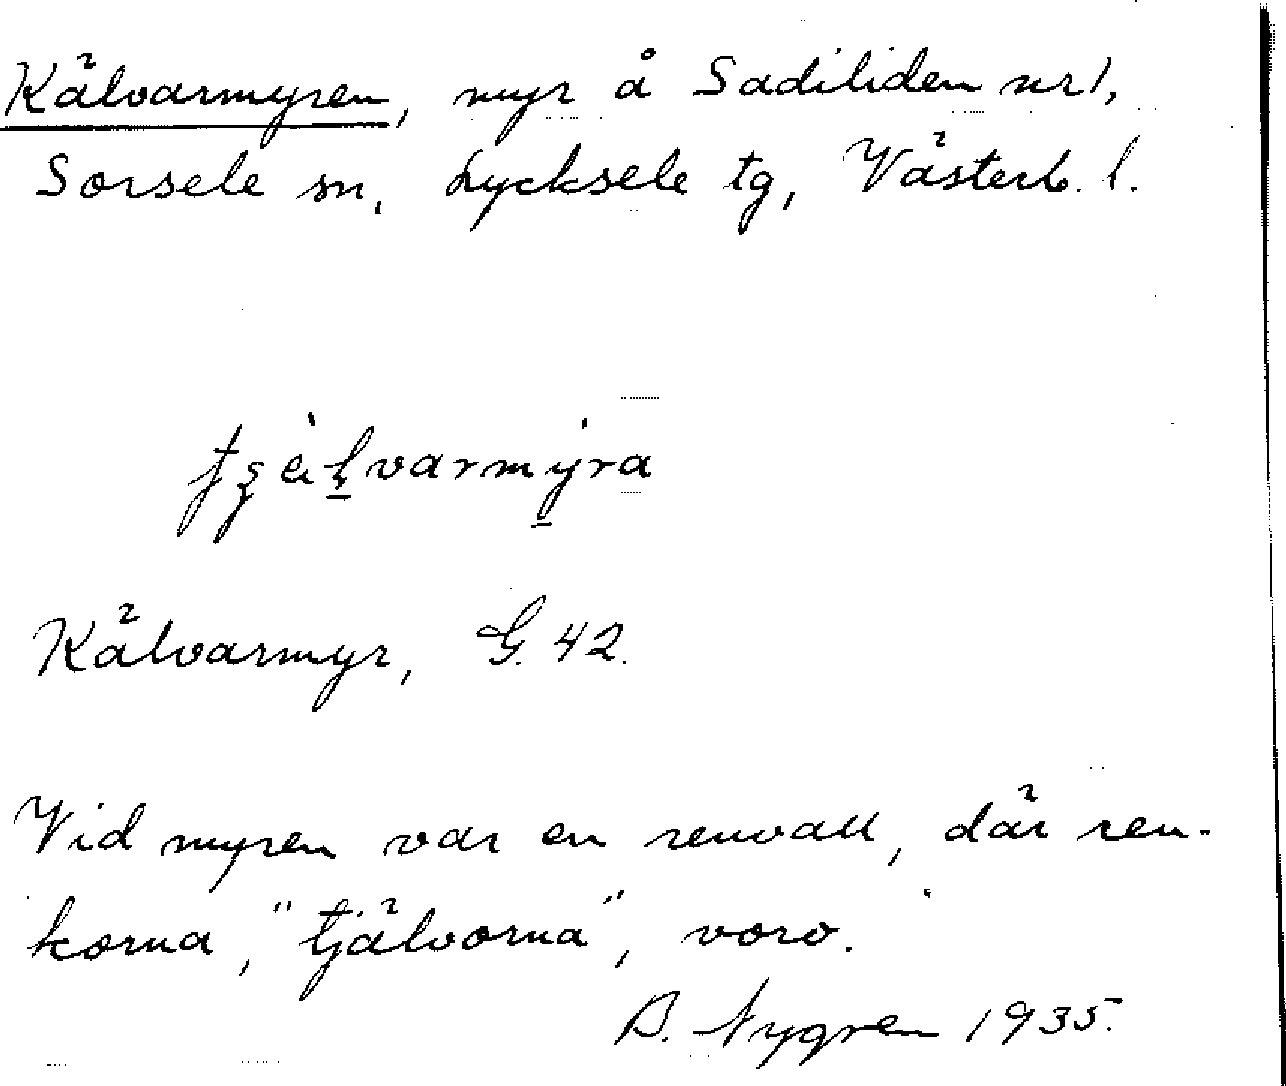 Kälvarmyren, myr å Sadiliden nr 1,
Sorsele sn, Lycksele tg, Västerb. l.
Kälvarmyr, G. 42.
Vid myren var en renvall, där ren-
korna, "tjälvorna", voro.
B. Nygren 1935.